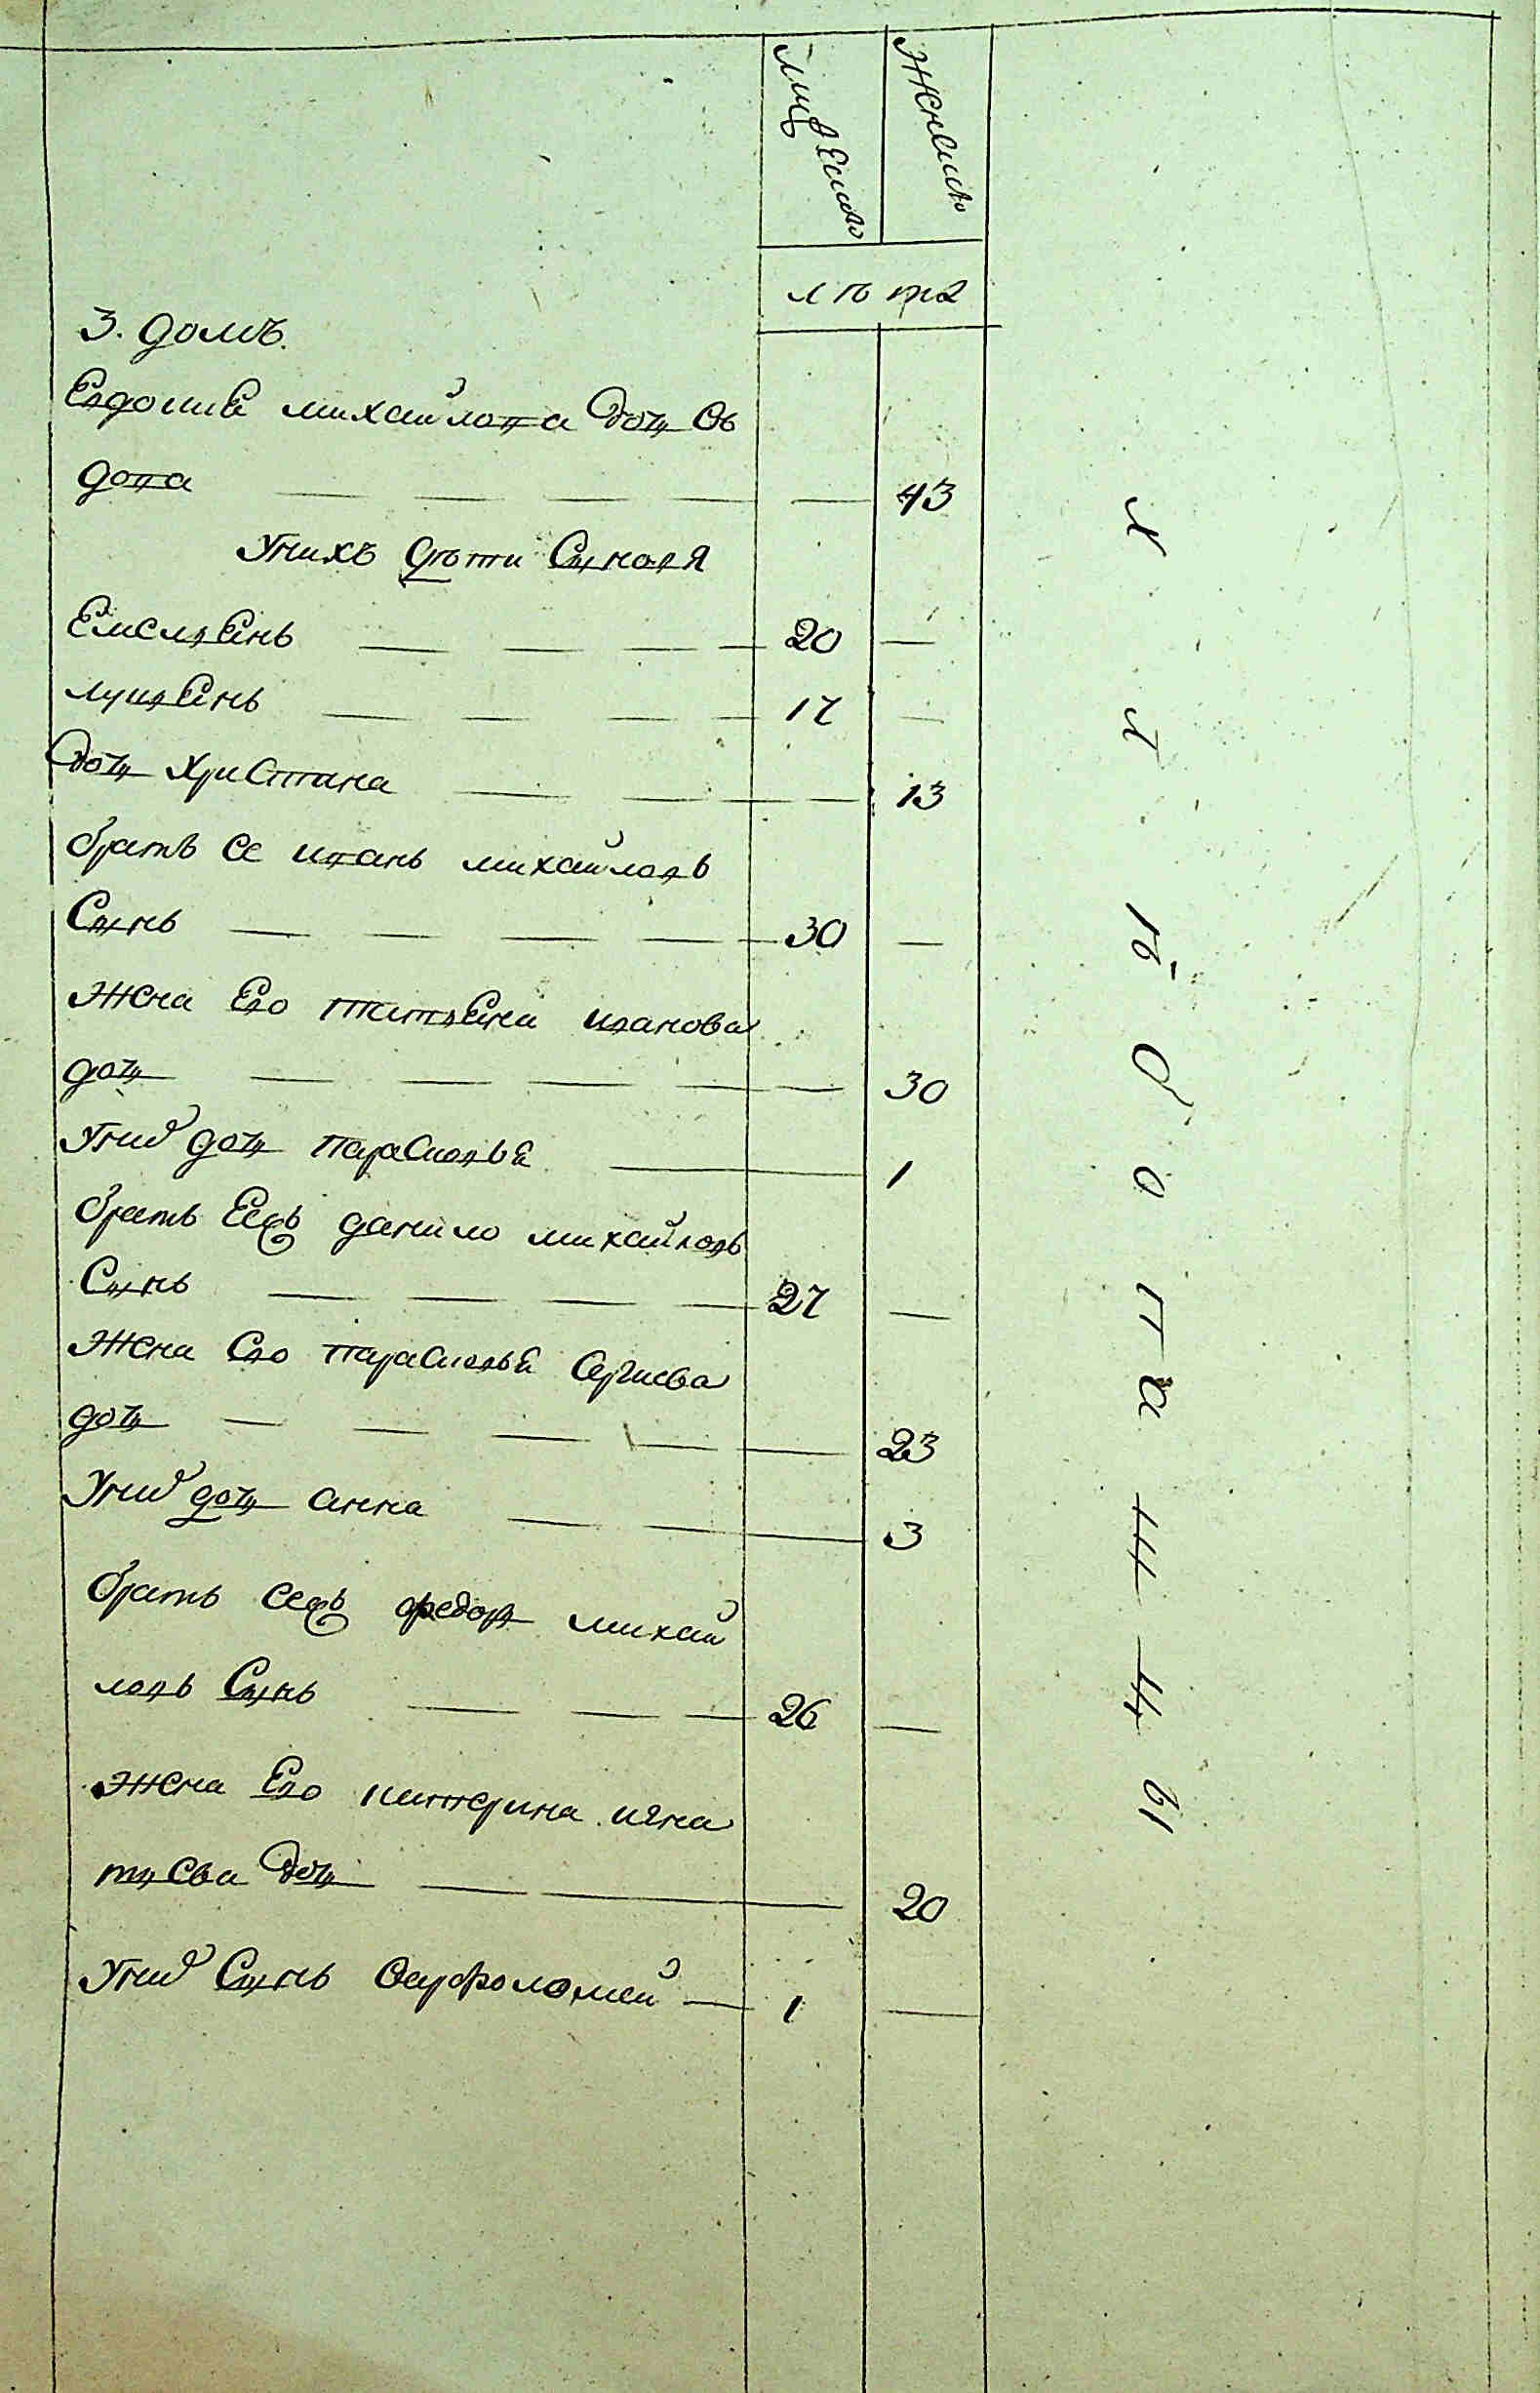 мужескъ
женскъ
лѣта
3. домъ.
Евдокиѣ михайлова дочь въ
дова 43
У нихъ дѣти Сыновя
Емельянъ 20 —
лукьянъ 17 —
дочь христина 13
братъ ее иванъ михайловъ
Сынъ 30 —
Жена Ево татьяна иванова
дочь 30
У них дочь парасковья 1
братъ Ееже данило михайловъ
Сынъ 27 —
Жена Ево парасковья Сергиева
дочь 23
У них дочь анна 3
братъ ееже федоръ михай
ловъ Сынъ 26 —
Жена Ево катерина игна
тьева дочь 20
У них Сынъ варфоломей — 1 —